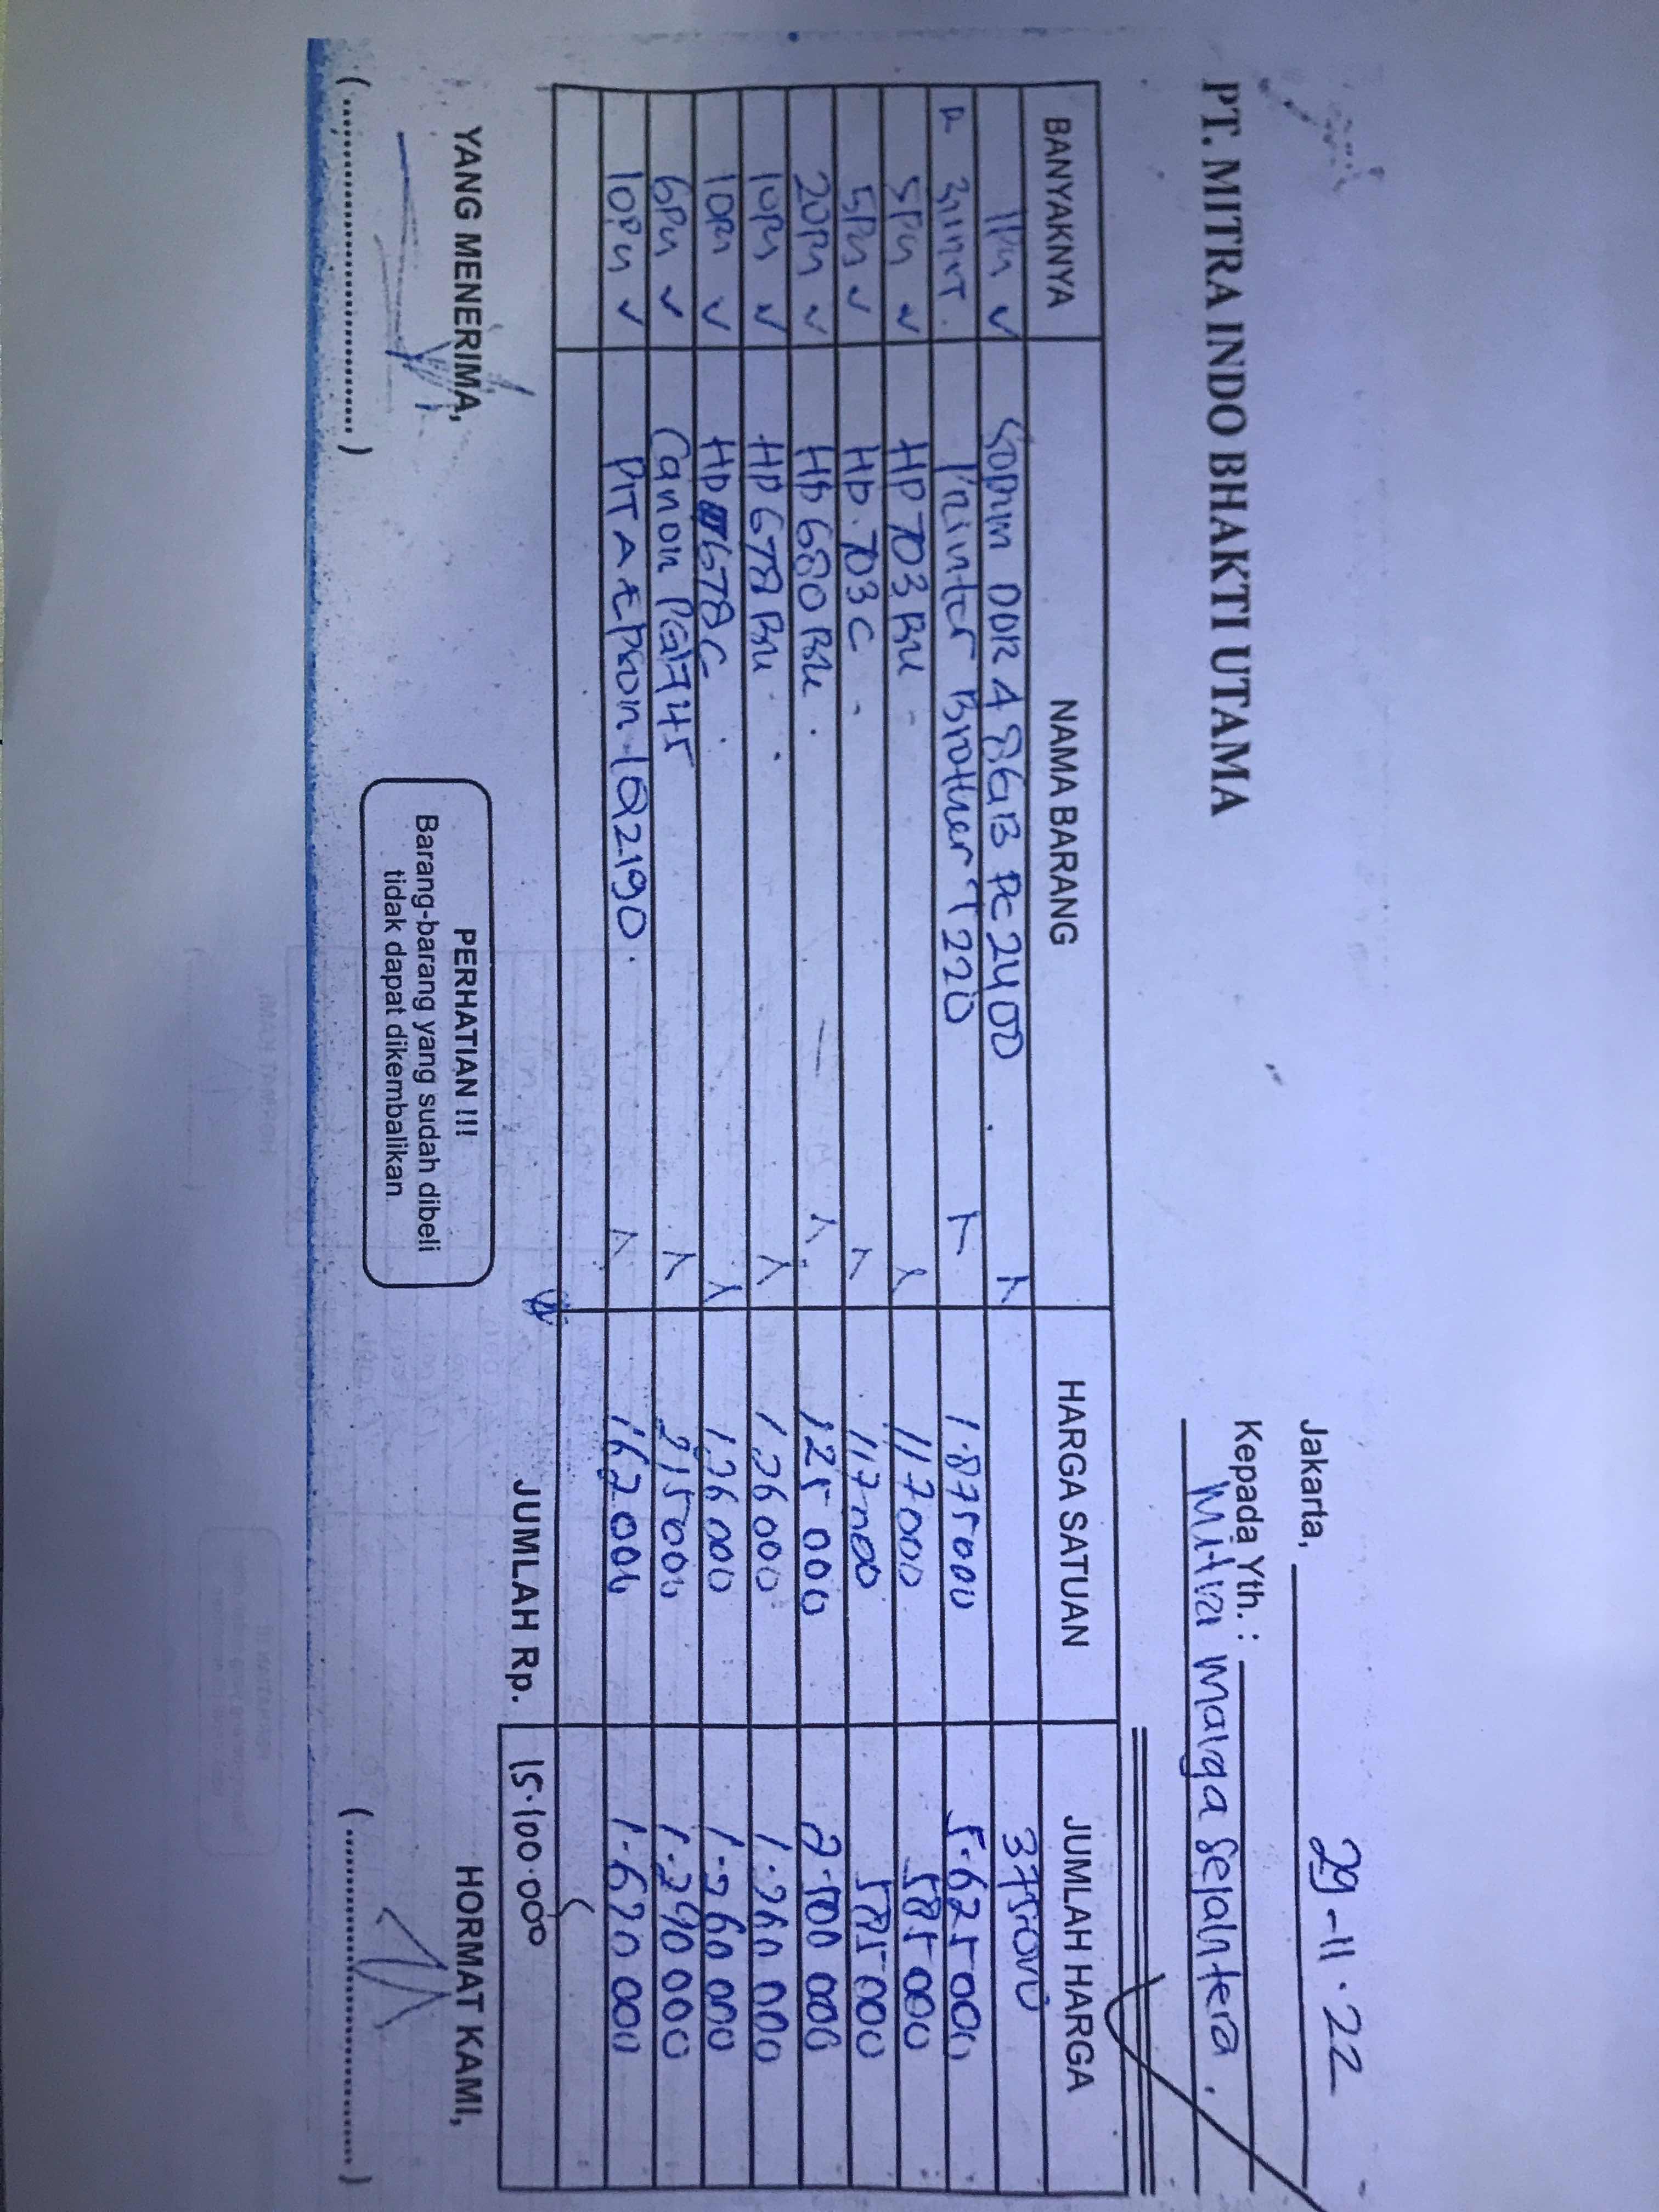 PT. MITRA INDO BHAKTI UTAMA
Jakarta, 29-11-22
Kepada Yth. :
Mitra marga Sejahtera.
BANYAKNYA NAMA BARANG HARGA SATUAN JUMLAH HARGA
1Pcs ✓ Sodim DDR 4 8GB PC 2400 375000
3 unit. Printer Brother T220 1.875000 5.625000
5Pcs ✓ HP 703 Blk 117000 585000
5Pcs ✓ HP. 703 C 117000 585000
20Pcs ✓ HP 680 Blk 125 000 2.500 000
10Pcs ✓ HP 678 Blk 126000 1.260 000
10Pcs ✓ HP 678 C 126000 1.260 000
6Pcs ✓ Canon PG 745 215000 1.290 000
10Pcs ✓ PITA Epson LQ2190 162000 1.620 000
JUMLAH Rp. 15.100.000
YANG MENERIMA,
PERHATIAN !!!
Barang-barang yang sudah dibeli
tidak dapat dikembalikan
HORMAT KAMI,